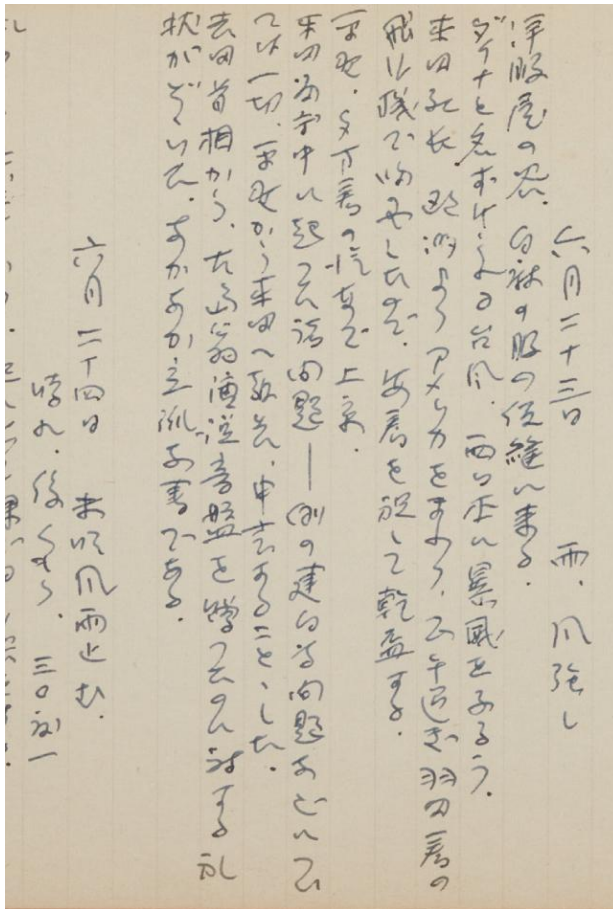 六月二十三日　雨、風強し
洋服屋の 、白麻の服の仮縫に来る。
ダイナと名ずけらるる台風、西日本に暴威をふるう。
来田社長、欧洲よりアメリカをまわり、正午過ぎ羽田着の
飛行機で帰 したので、安着を祝して乾盃する。
平野、夕方着の汽車で上京。
来田留守中に起った諸問題――例の建白書問題などについ
ては一切、平野から来田へ報告、申言することゝした。
吉田首相から、古島翁演説音盤を贈ったのに対する礼
状がとどいた。なかなか立派な書である。
六月二十四日　未明風雨止む。
晴れ、後くもり。三〇社一